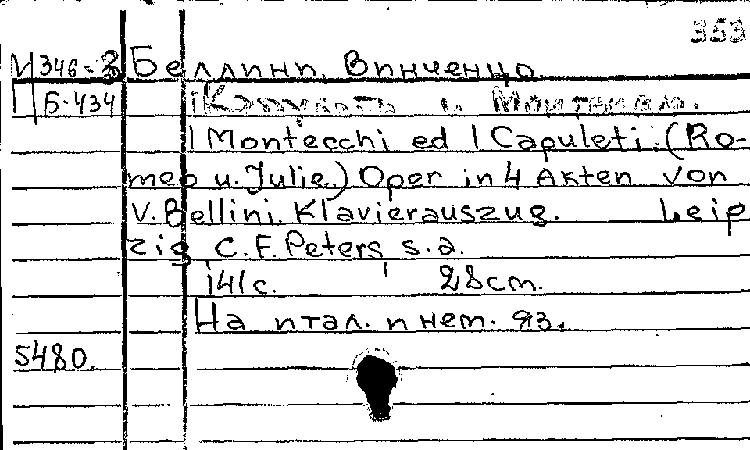 353
И346-3 Беллини, Винченцо
Б-434 [Капулетти и Монтекки.
I Montecchi ed I Capuleti. (Ro-
meo u. Julie.) Oper in 4 Akten von
V. Bellini. Klavierauszug. Leip
zig, C. F. Peters, s. a.
141 c. 28 cm.
На итал. и нем. яз.
5480.